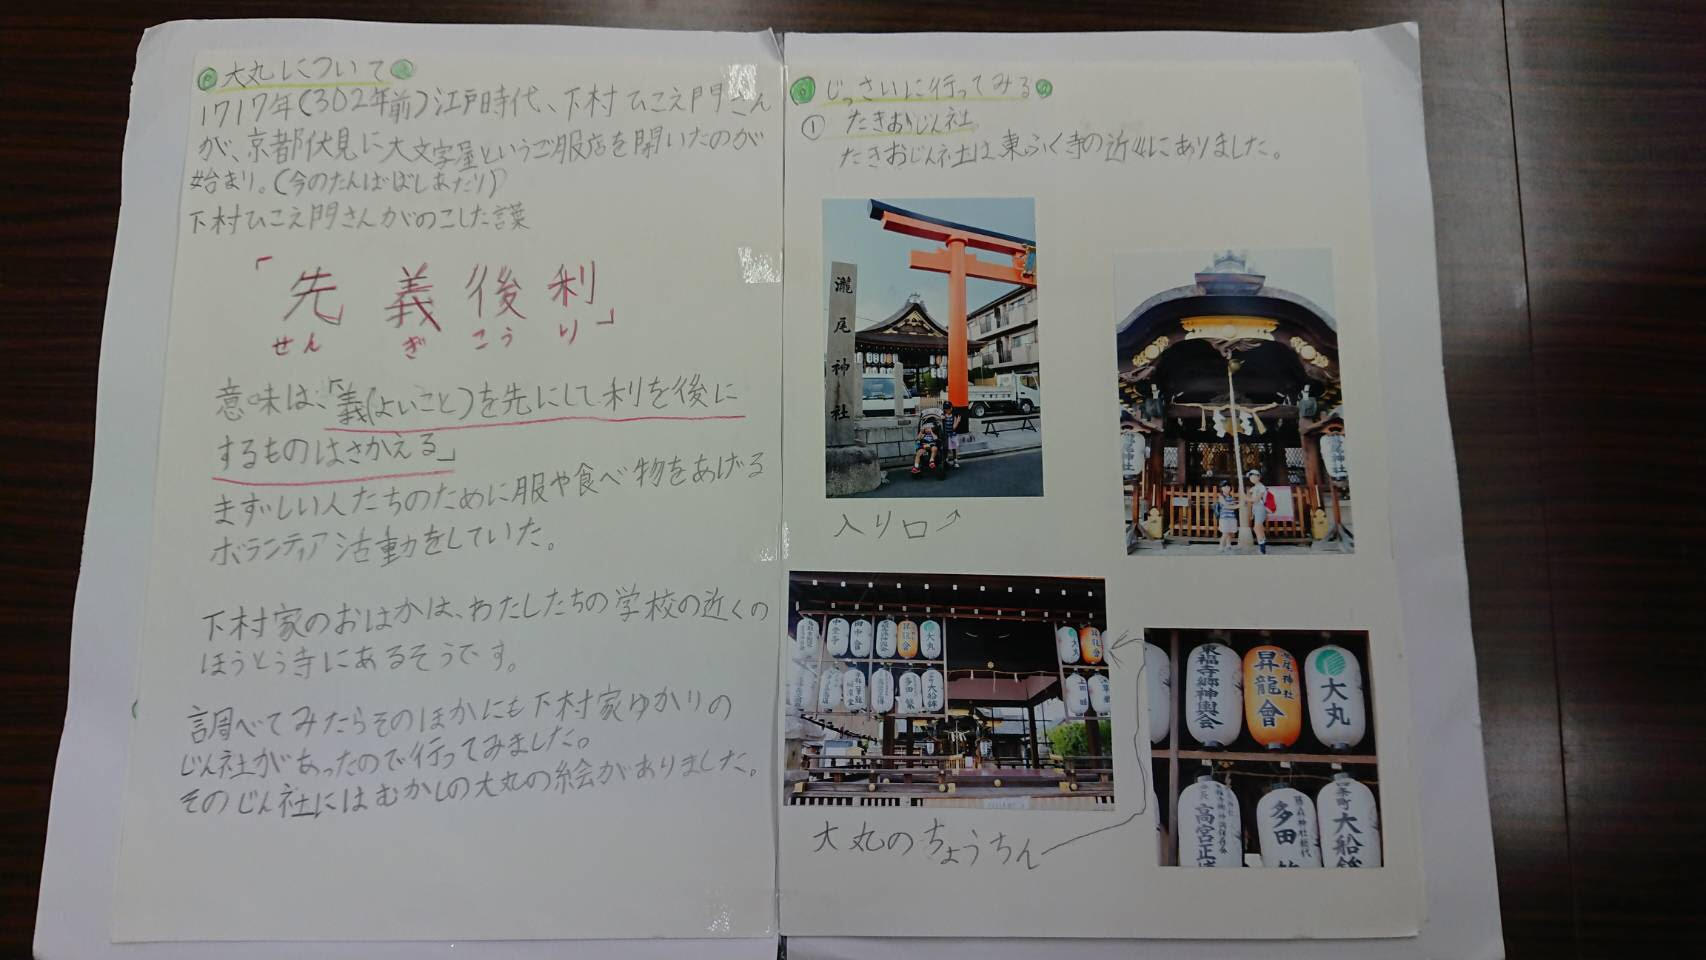 大丸について
1717年(302年前)江戸時代、下村ひこえ門さん
が、京都伏見に大文字屋というご服店を開いたのが
始まり。(今のたんばばしあたり)
下村ひこえ門さんがのこした言葉
「先義後利」
せん ぎ こう り
意味は、「義(よいこと)を先にして利を後に
するものはさかえる」
まずしい人たちのために服や食べ物をあげる
ボランティア活動をしていた。
下村家のおはかは、わたしたちの学校の近くの
ほうとう寺にあるそうです。
調べてみたらそのほかにも下村家ゆかりの
じん社があったので行ってみました。
そのじん社にはむかしの大丸の絵がありました。
じっさいに行ってみる
① たきおじん社
たきおじん社は東ふく寺の近くにありました。
瀧尾神社
入り口
中堂寺
田中會
昇龍會
大丸
大丸
多田
大船鉾
上田
大丸のちょうちん
東福寺郷神輿会
瀧尾神社
昇龍會
大丸
高宮正
瀧尾神社総代
多田
四条町
大船鉾